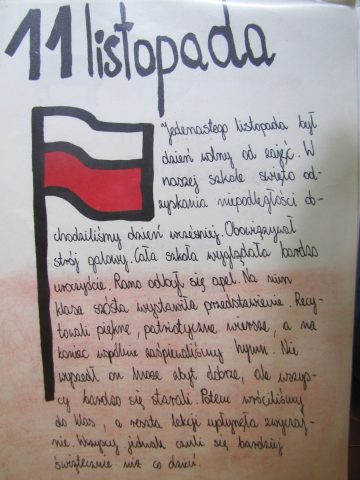 11 listopada
Jedenastego listopada był
dzień wolny od zajęć. W
naszej szkole święto od-
zyskania niepodległości ob-
chodziliśmy dzień wcześniej. Obowiązywał
strój galowy. Cała szkoła wyglądała bardzo
uroczyście. Rano odbył się apel. Na nim
klasa szósta wystawiła przedstawienie. Recy-
towali piękne, patriotyczne wiersze, a na
koniec wspólnie zaśpiewaliśmy hymn. Nie
wyszedł on może zbyt dobrze, ale wszys-
cy bardzo się starali. Potem wróciliśmy
do klas, a reszta lekcji upłynęła zwyczaj-
nie. Wszyscy jednak czuli się bardziej
świątecznie niż co dzień.